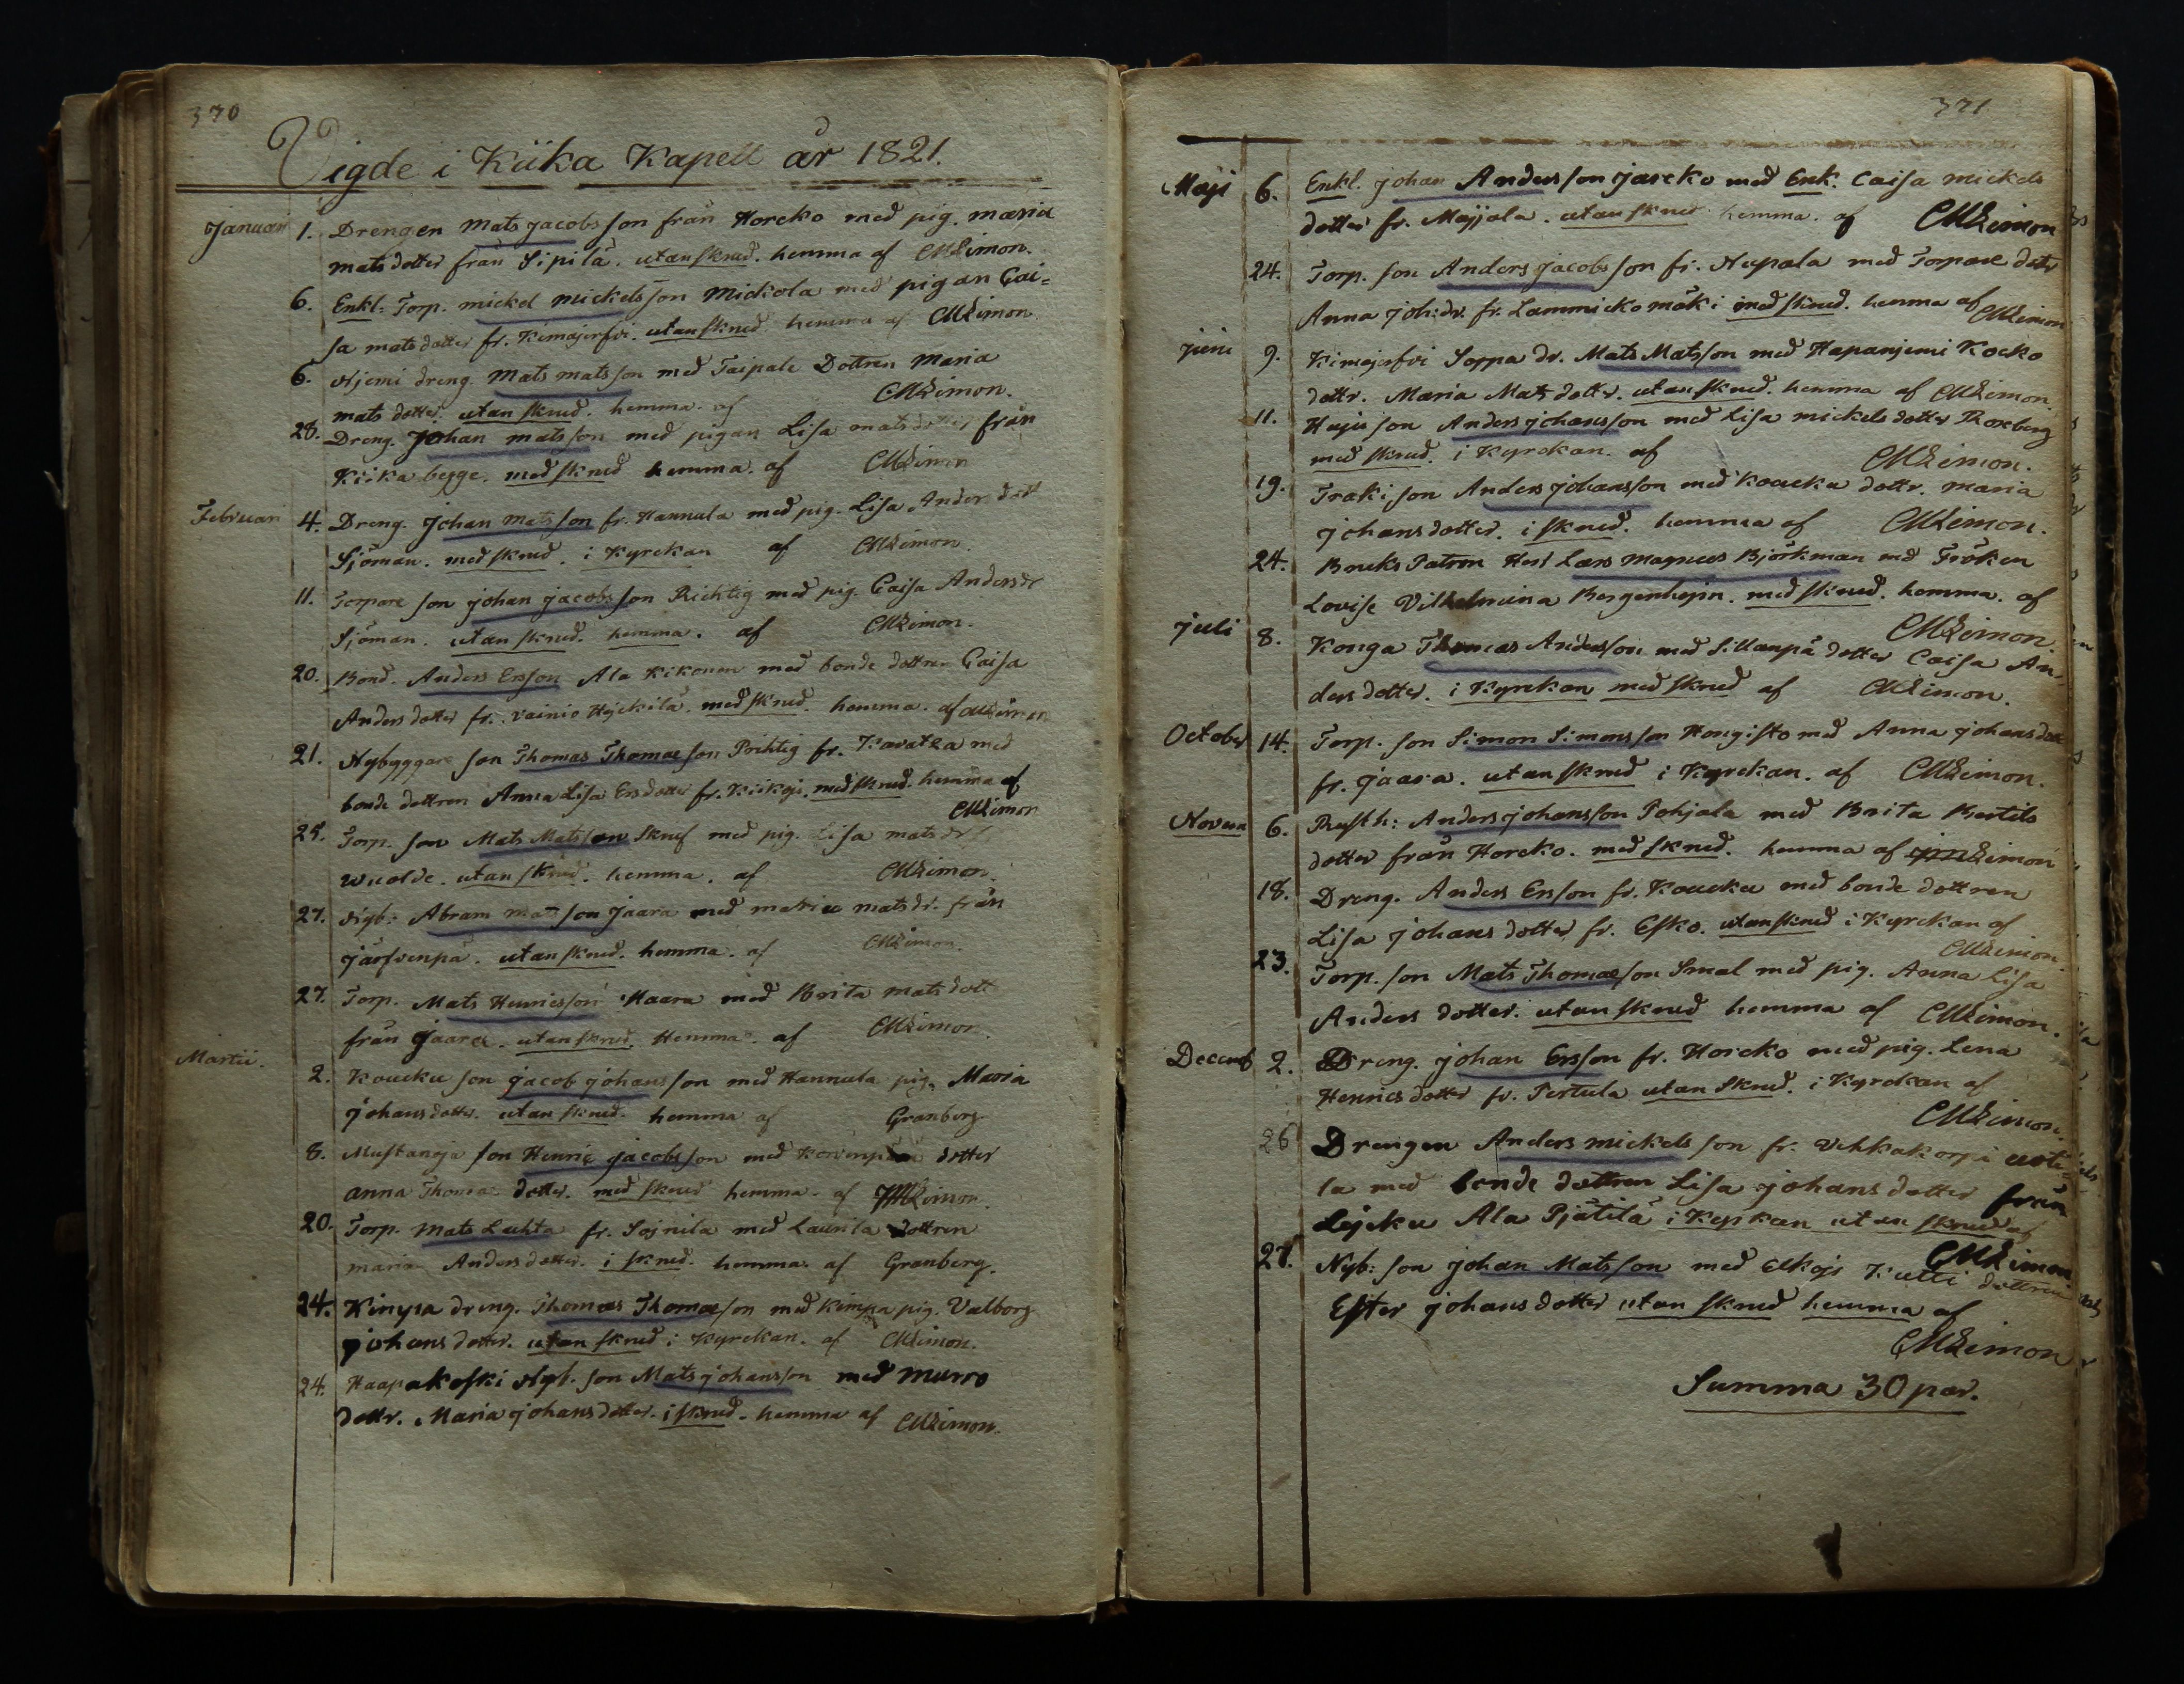 370
Vigde i Kiika Kapell år 1821.
Januari 1. Drengen Mats Jacobsson från Horcko med pig. Maria
Matsdotter från Sipilä. utan skrud. hemma af CMLimon.
6. Enkl: Torp. Mickel Mickelsson Mickola med pigan Cai=
sa Matsdotter fr. Kimajerfvi. utan skrud. hemma af CMLimon
6. Njemi dreng. Mats Matsson med Taipale Dottren Maria
Matsdotter. utan skrud. hemma. af CMLimon.
28. Dreng. Johan Matsson med pigan Lisa Matsdotter från
Kiika begge. med skrud hemma. af CMLimon
Februari 4. Dreng. Johan Matsson fr. Hannula med pig. Lisa Anders dott
Sjöman. med skrud. i Kyrckan af CMLimon.
11. Torpare son Johan Jacobsson Richtig med pig. Caisa Andersdr
Sjöman. utan skrud. hemma. af CMLimon.
20. Bond. Anders Ersson Ala Kikonen med bonde dottren Caisa
Anders dotter fr. Vainio Hyckilä. med skrud. hemma. af CMLimon
21. Nybyggare son Thomas Thomasson Prihtig fr. Karatka med
bonde dottren Anna Lisa Ersdotter fr. Kiikoji. med skrud. hemma af
CMLimon
25. Torp. son Mats Matsson Skruf med pig. Lisa Matsdr
Wuolde. utan skrud. hemma. af CMLimon.
27. Nyb: Abram Matsson Jaara med Maria Matsdr. från
Järfvenpä. utan skrud. hemma. af CMLimon.
27. Torp. Mats Henricsson Haara med Brita Mats dott
från Jaara. utan skrud. Hemma. af CMLimon.
Martii. 2. Koucku son Jacob Johansson med Hannula pig. Maria
Johansdotter. utan skrud. hemma af Granberg
8. Mustanoja son Henric Jacobsson med dotter
Anna Thomas dotter. med skrud hemma. af Limon.
20. Torp. Mats Luhta fr. Sojnila med Laurila Dottren
Maria Andersdotter. i skrud. hemma. af Granberg.
24. Kinysa dreng. Thomas Thomasson med Kimpa pig. Valborg
Johans dotter. utan skrud i Kyrckan. af CMLimon.
24. Haapakoski Nyb. son Mats Johansson med Murro
dottr. Maria Johansdotter. i skrud. hemma af CMLimon.
371
Maji 6. Enkl. Johan Andersson Jarcko med Enk. Caisa Mickels
dotter fr. Majjala. utan skrud hemma. af CMLimon
24. Torp. son Anders Jacobsson fr. Hepala med Torpare dotr
Anna Joh:dr. fr. Lammicko mäki med skrud. hemma af CMLimon
Juni 9. Kimajerfvi Soppa dr. Mats Matsson med Hapanjemi Kocko
dottr. Maria Mats dotter. utan skrud. hemma af CMLimon.
11. Huju son Anders Johansson med Lisa Mickels dotter Roxberg
med skrud. i Kyrckan. af CMLimon.
19. Traki son Anders Johansson med Koucku dottr. Maria
Johansdotter. i skrud. hemma af CMLimon.
24. Bruks Patron Herr Lars Magnus Björkman med Fröken
Lovise Vilhelmina Bergenhejm. med skrud. hemma. af
CMLimon.
Juli 8. Konga Thomas Andersson med Sillanpä dotter Caisa An-
ders dotter. i Kyrckan med skrud af CMLimon.
October 14. Torp. son Simon Simonsson Hongisto med Anna Johansdott
fr. Jaara. utan skrud i Kyrckan. af CMLimon.
Novem 6. Rusth: Anders Johansson Pohjala med Brita Bertils
dotter från Horcko. med skrud. hemma af Limon
18. Dreng. Anders Ersson fr. Koucku med bonde dottren
Lisa Johans dotter fr. Esko. utan skrud i Kyrckan af
CMLimon.
23. Torp. son Mats Thomasson Smal med pig. Anna Lisa
Anders dotter. utan skrud hemma af CMLimon.
Decemb 2. Dreng. Johan Ersson fr. Horcko med pig. Lena
Henrics dotter fr. Pertula utan skrud. i Kyrckan af
CMLimon.
26 Drengen Anders Mickelsson fr. Vehkakorpi
la med bonde dottren Lisa Johans dotter från
Lejcku Ala Pjätilä i Kyrkan utan skrud af
CMLimon.
27. Nyb: son Johan Matsson med Elkojs Kutti dottren
Ester Johans dotter utan skrud hemma af
CMLimon
Summa 30 par.